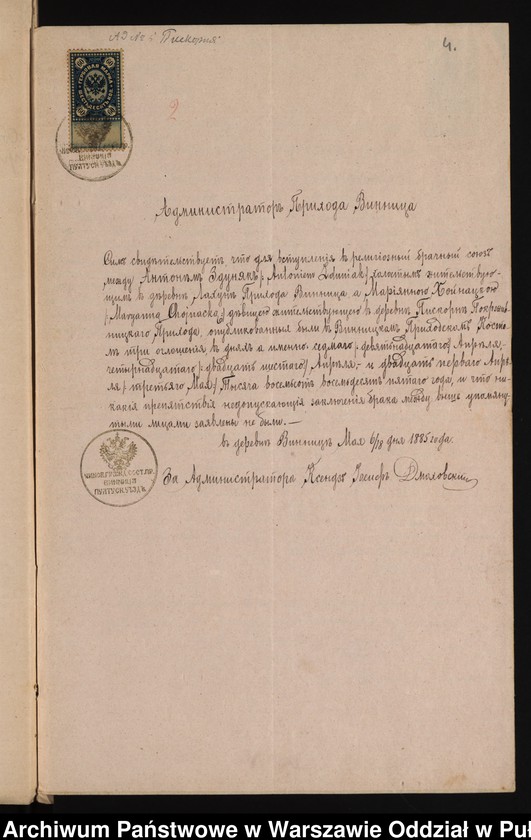 АЭ №5 Пискорня
4.
2
60
60
Администраторъ Прихода Винница
Симъ свидѣтельствуетъ что для вступленія въ религіозный брачный союзъ
между Антонимъ Здунякъ /Antoniem Zduniak/ холостымъ жительствую-
щимъ въ деревнѣ Прихода Винница а Маріянною Хойнацкою
/Maryanną Chojnacką/ дѣвицею жительствующею въ деревнѣ Пискорнѣ Покржив-
ницкаго Прихода, опубликованныя были въ Винницкомъ Приходскомъ Косте-
лѣ три оглашенія въ дняхъ а именно: седмаго /девятнадцатаго/ Апрѣля,
четырнадцатаго /двадцать шестаго/ Апрѣля, и двадцать перваго Апрѣ-
ля /третьяго Мая/ Тысяча восемьсотъ восемдесятъ пятаго года, и что ни-
какія препятствія недопускающія заключенія брака между выше упомяну-
тыми лицами заявлены не были. —
въ деревнѣ Винницѣ Мая 6/18 дня 1885 года.
За Администратора Ксендзъ Дмоховскій
ПУЛТУСК. УѢЗДЪ
Archiwum Państwowe w Warszawie Oddział w Puł